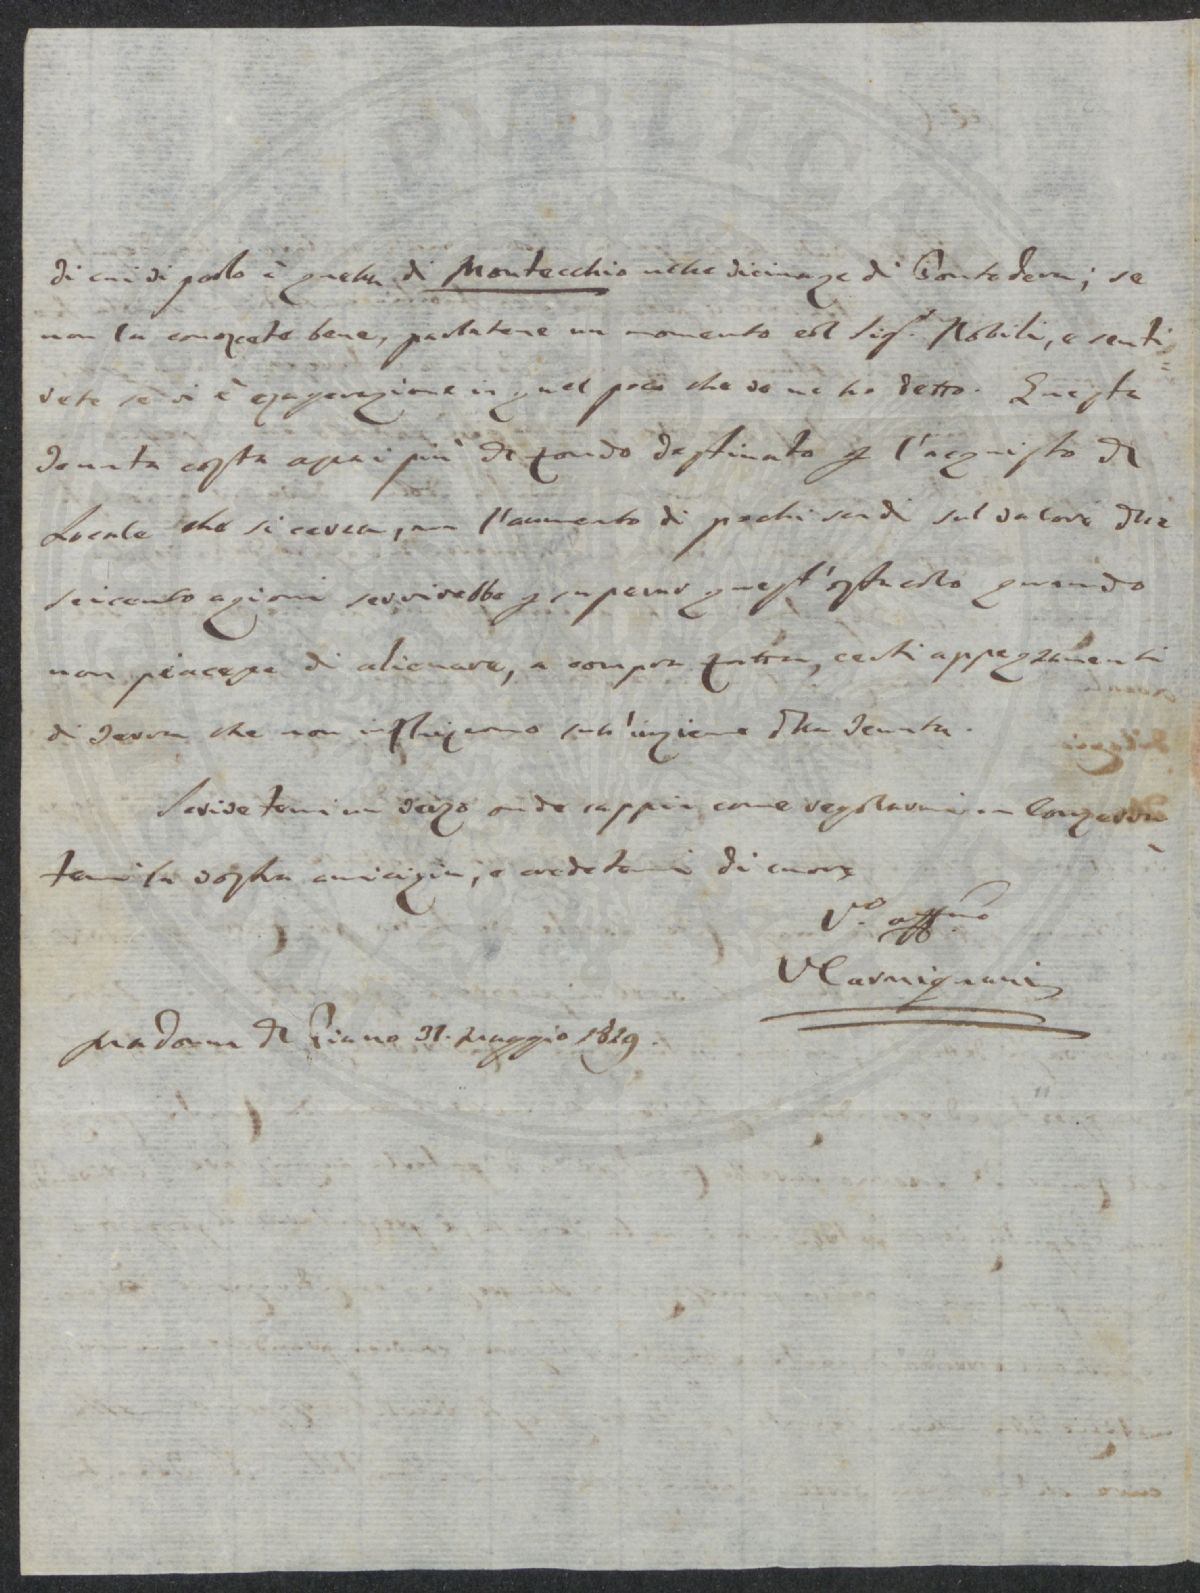 di cui vi parlo è quella di Montecchio nelle vicinanze di Pontedera; se
non la conoscete bene, parlatene un momento col Sig.r Nobili, e senti=
rete se vi è esagerazione in quel poco che ve ne ho detto. Questa
tenuta costa assai più del fondo destinato p l'acquisto del
Locale che si cerca, ma l'aumento di pochi scudi sul valore delle
seicento azioni servirebbe p superar quest'ostacolo quando
non piacesse di alienare, a compra fatta, certi appezzamenti
di terra che non influiscono sull'insieme della tenuta.
Scrivetemi un verso onde sappia come regolarmi. Conserva
temi la vostra amicizia, e credetemi di cuore
V.o affmo
Carmignani
Madonna del Piano 31. Maggio 1829.
PVBLICA